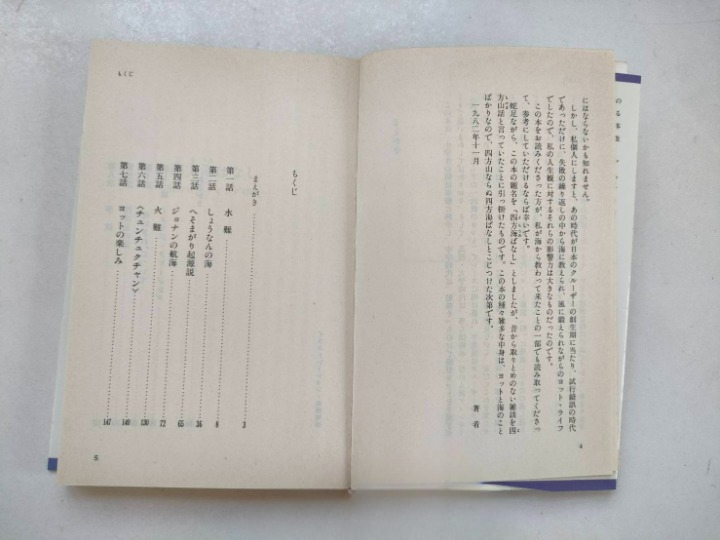 にはならないかも知れません。
しかし、私個人にしますと、あの時代が日本のクルーザーの創生期に当たり、試行錯誤の時代
であっただけに、失敗の繰り返しの中から海に教えられ、風に鍛えられながらのヨット・ライフ
でしたので、私の人生観に対するそれらの影響力は大きなものだったのです。
この本をお読みくださった方が、私が海から教わって来たことの一部でも読み取ってくださっ
て、参考にしていただけるならば幸いです。
蛇足ながら、この本の題名を「四方海ばなし」としましたが、昔から取りとめのない雑談を四
方山話と言っていたことに引っ掛けたものです。この本の種々雑多な中身は、ヨットと海のこと
ばかりなので、四方山ならぬ四方海ばなしとこじつけた次第です。
一九八二年十一月
著者
4
もくじ
もくじ
まえがき 3
第一話 水 8
第二話 しょうなんの海 36
第三話 へそまがり起源説 65
第四話 ジョナンの航海 72
第五話 火 130
第六話 〈チュンチェクチャン〉 140
第七話 ヨットの楽しみ 147
5